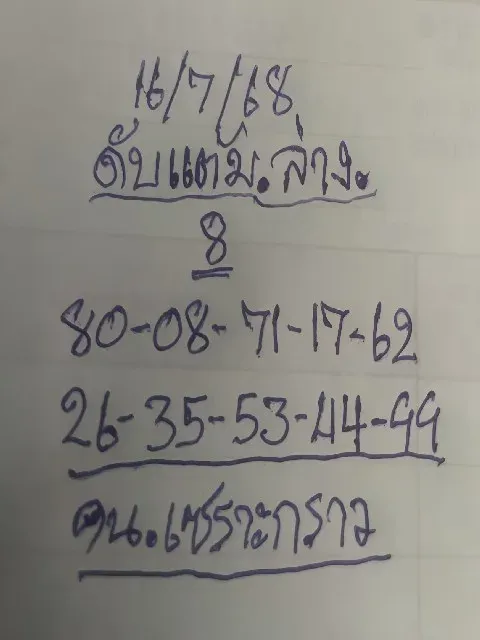 16/7/68
ดับแต้ม.ล่าง.
8
80-08-71-17-62
26-35-53-44-99
คน.เซราะกราว